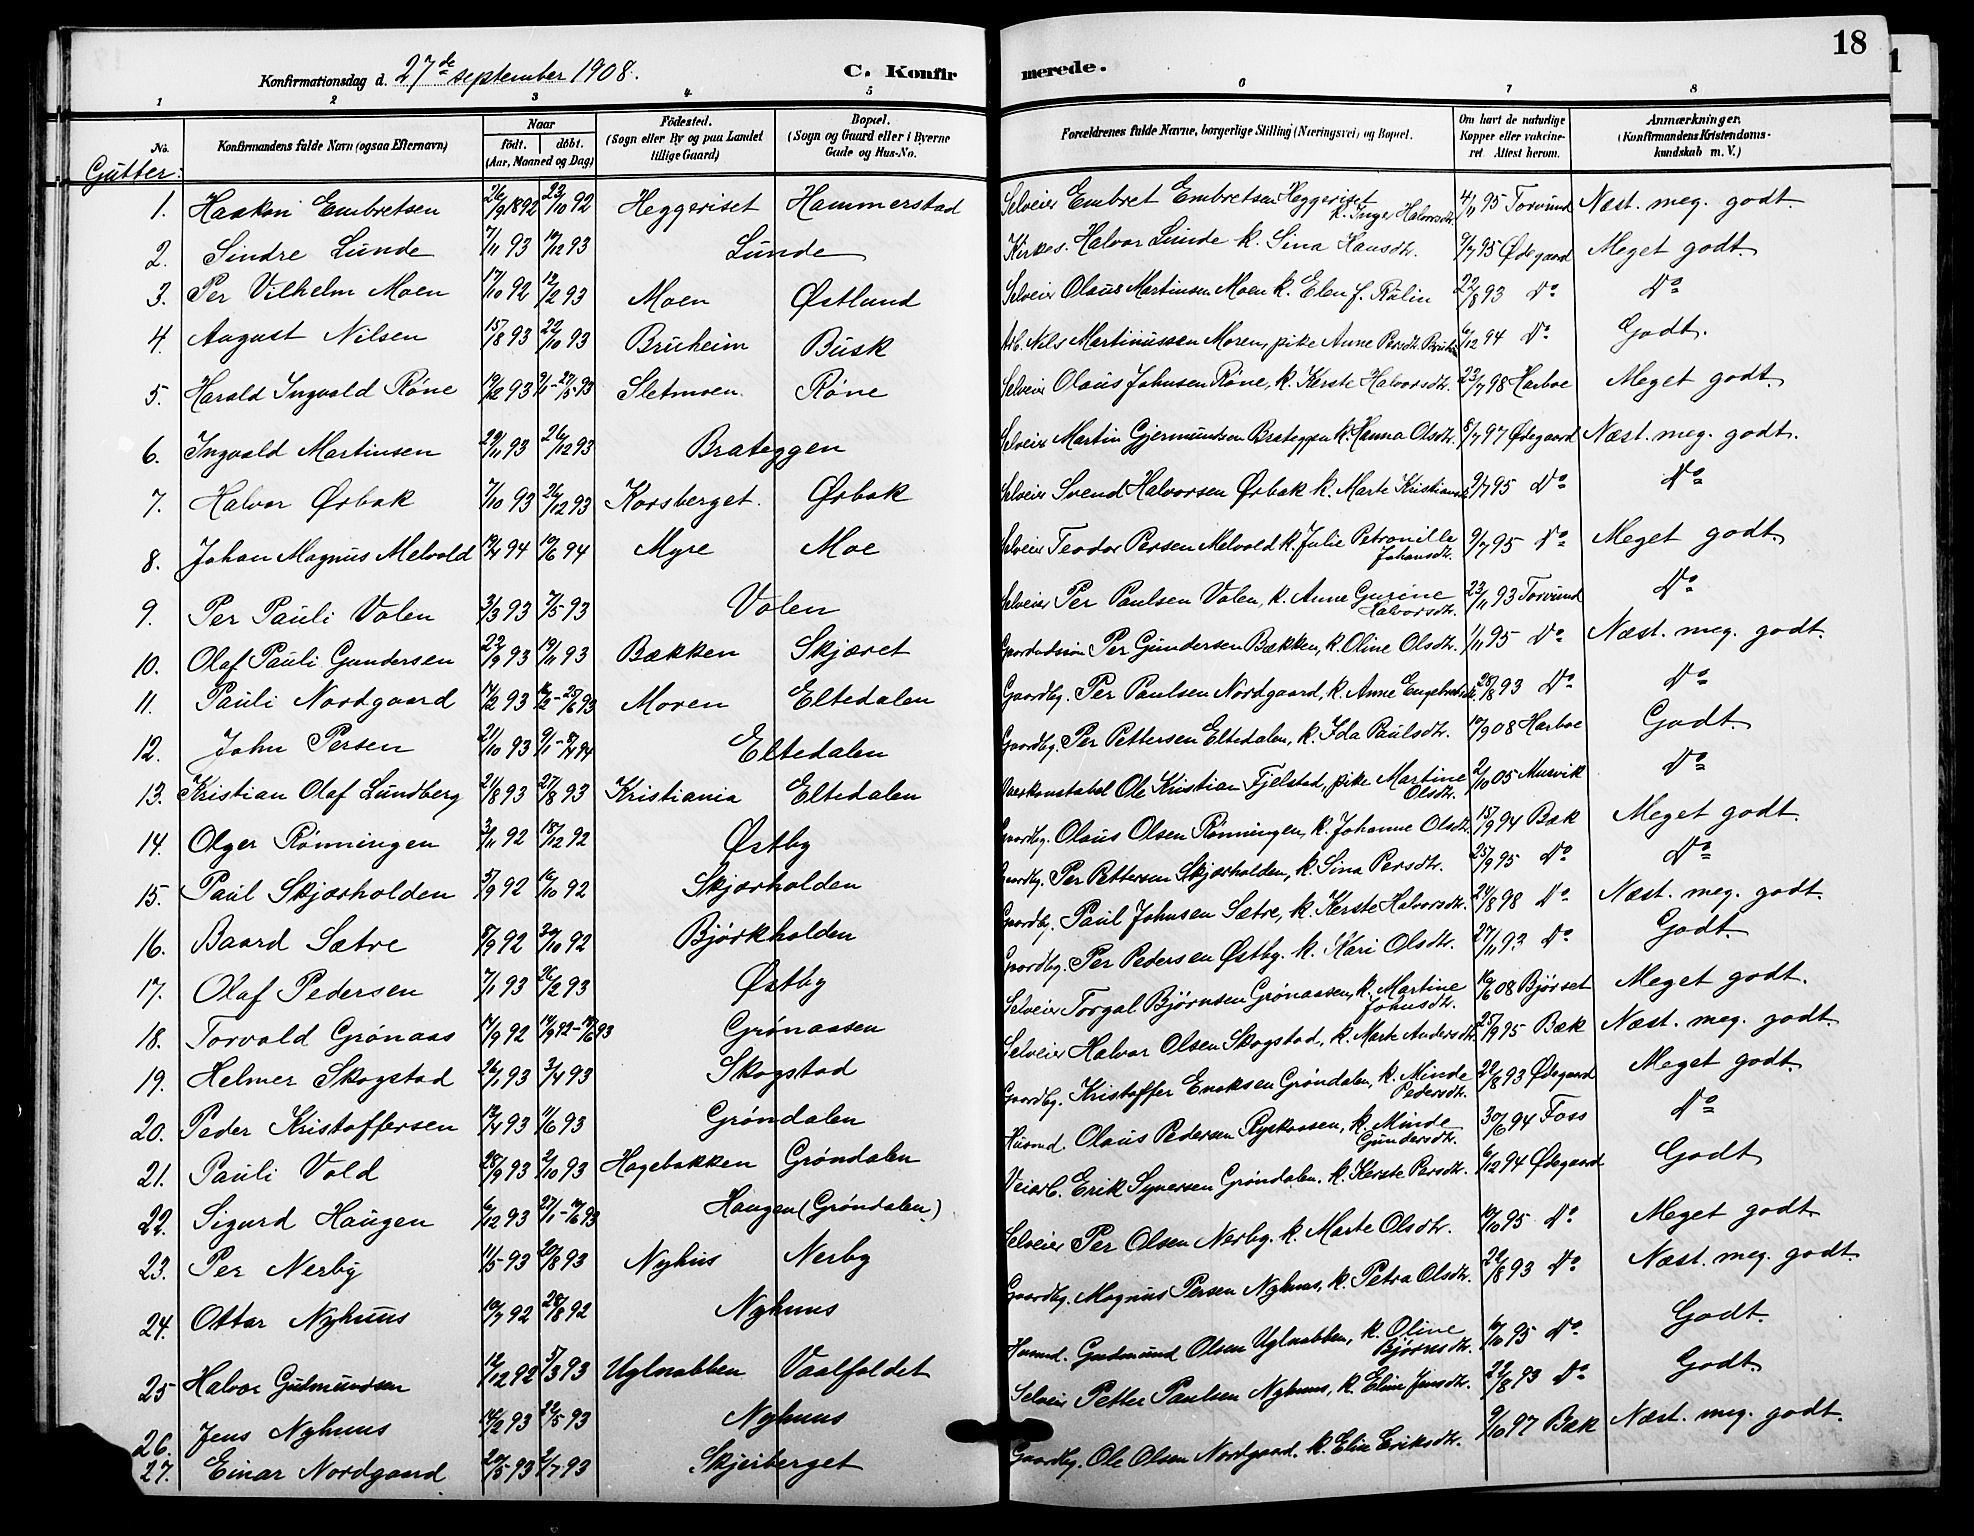 18
Konfirmationsdag d. 27de september 1908.
C. Konfirmerede.
1 2 3 4 5 6 7 8
No.
Konfirmandens fulde Navn (ogsaa Efternavn)
Naar
födt. döbt.
(Aar, Maaned og Dag)
Födested.
(Sogn eller By og paa Landet
tillige Gaard)
Bopæl.
(Sogn og Gaard eller i Byerne
Gade og Hus-No.
Forældrenes fulde Navne, borgerlige Stilling (Næringsvei) og Bopæl.
Om havt de naturlige
Kopper eller vakcine-
ret Attest herom.
Anmærkninger.
(Konfirmandens Kristendoms-
kundskab m. V.)
Gutter:
1. Haakon Embretsen 26/9 1892 23/10 92 Heggeriset Hammerstad Selveier Embret Embretsen Heggeriset k. Inger Halvorsdtr. 4/11 95 Torvund Næst. meg. godt.
2. Sindre Lunde 7/11 93 10/12 93 Lunde Kirkes. Halvor Lunde k. Sina Hansdtr. 9/7 95 Ødegaard Meget godt.
3. Per Vilhelm Moen 17/10 92 12/2 93 Moen Østlund Selveier Olaus Martinsen Moen k. Elen f. Rålin 22/8 93 Do Do
4. August Nilsen 15/8 93 22/10 93 Bruheim Busk Arb. Nils Martinussen Moren, pike Anne Persdtr. 6/12 94 Do Godt.
5. Harald Ingvald Røne 19/2 93 Sletmoen Røne Selveier Olaus Johnsen Røne, k. Kerste Halvorsdtr. 23/7 98 Harboe Meget godt.
6. Ingvald Martinsen 29/11 93 26/12 93 Brateggen Selveier Martin Gjermundsen Brateggen k. Hanna Olsdtr. 8/7 97 Ødegaard Næst. meg. godt.
7. Halvor Ørbak 7/10 93 26/12 93 Korsberget Ørbak Selveier Svend Halvorsen Ørbak k. Marte Kristiansdtr. 9/7 95 Do Do
8. Johan Magnus Melvold 19/4 94 10/6 94 Myre Moe Selveier Teodor Persen Melvold k. Julie Petronille Johansdtr. 9/7 95 Do Meget godt.
9. Per Pauli Volen 3/3 93 7/5 93 Volen Selveier Per Paulsen Volen, k. Anne Gurine Halvorsdtr. 23/11 93 Torvund Do
10. Olaf Pauli Gundersen 22/9 93 19/11 93 Bækken Skjæret Per Gundersen Bækken, k. Oline Olsdtr. 1/11 95 Do Næst. meg. godt.
11. Pauli Nordgaard 17/2 93 Moren Eltedalen Gaardbg. Per Paulsen Nordgaard, k. Anne Engebretsdtr. 28/8 93 Do Do
12. John Persen 21/10 93 9/1 - 8/4 94 Eltedalen Gaardbg. Per Pettersen Eltedalen, k. Ida Paulsdtr. 10/9 08 Harboe Godt.
13. Kristian Olaf Lundberg 21/8 93 27/8 93 Kristiania Eltedalen Ole Kristian Fjelstad, pike Martine Olsdtr. 2/10 05 Musvik Do
14. Olger Rønningen 3/11 92 18/12 92 Østby Gaardbg. Olaus Olsen Rønningen, k. Johanne Olsdtr. 15/9 94 Bæk Meget godt.
15. Paul Skjærholden 5/9 92 16/10 92 Skjærholden Gaardbg. Per Pettersen Skjærholden, k. Sina Persdtr. 25/9 95 Do Do
16. Baard Sætre 8/9 92 30/10 92 Bjørkholden Gaardbg. Paul Johnsen Sætre, k. Kerste Halvorsdtr. 24/8 98 Do Næst. meg. godt.
17. Olaf Pedersen 7/1 93 26/2 93 Østby Gaardbg. Per Pedersen Østby. k. Kari Olsdtr. 27/11 93 Do Godt.
18. Torvald Grønaas 17/9 92 Grønaasen Selveier Torgal Bjørnsen Grønaasen, k. Martine Johnsdtr. 16/6 08 Bjørset Meget godt.
19. Helmer Skogstad 26/1 93 3/4 93 Skogstad Selveier Halvor Olsen Skogstad, k. Marte Andersdtr. 25/9 95 Bæk Næst. meg. godt.
20. Peder Kristoffersen 13/4 93 11/6 93 Grøndalen Gaardbg. Kristoffer Enoksen Grøndalen, k. Minde Pedersdtr. 22/8 93 Ødegaard Meget godt.
21. Pauli Vold 28/9 93 2/10 93 Hagebakken Grøndalen Husmd. Olaus Pedersen k. Minde Gundersdtr. 30/6 94 Foss Do
22. Sigurd Haugen 6/12 93 Haugen (Grøndalen) Veiarb. Erik Syversen Grøndalen, k. Kerste Persdtr. 6/12 94 Ødegaard Godt
23. Per Nerby 11/5 93 20/8 93 Nyhus Nerby Selveier Per Olsen Nerby. k. Marte Olsdtr. 10/10 95 Do Meget godt
24. Ottar Nyhuus 10/7 92 28/8 92 Nyhuus Gaardbg. Magnus Persen Nyhuus, k. Petra Olsdtr. 22/8 93 Do Næst. meg. godt.
25 Halvor Gudmundsen 12/12 92 5/3 93 Uglnabben Vaalfaldet Husmd. Gudmund Olsen Uglnabben, k. Oline Bjørnsdtr. 6/10 95 Do Godt.
26. Jens Nyhuus 14/2 93 22/5 93 Nyhuus Selveier Petter Paulsen Nyhuus, k. Eline Jensdtr. 22/8 93 Do Godt.
27. Einar Nordgaard 20/5 93 2/7 93 Skjeiberget Gaardbg. Ole Olsen Nordgaard. k. Elin Eriksdtr. 9/10 97 Bæk Næst. meg. godt.